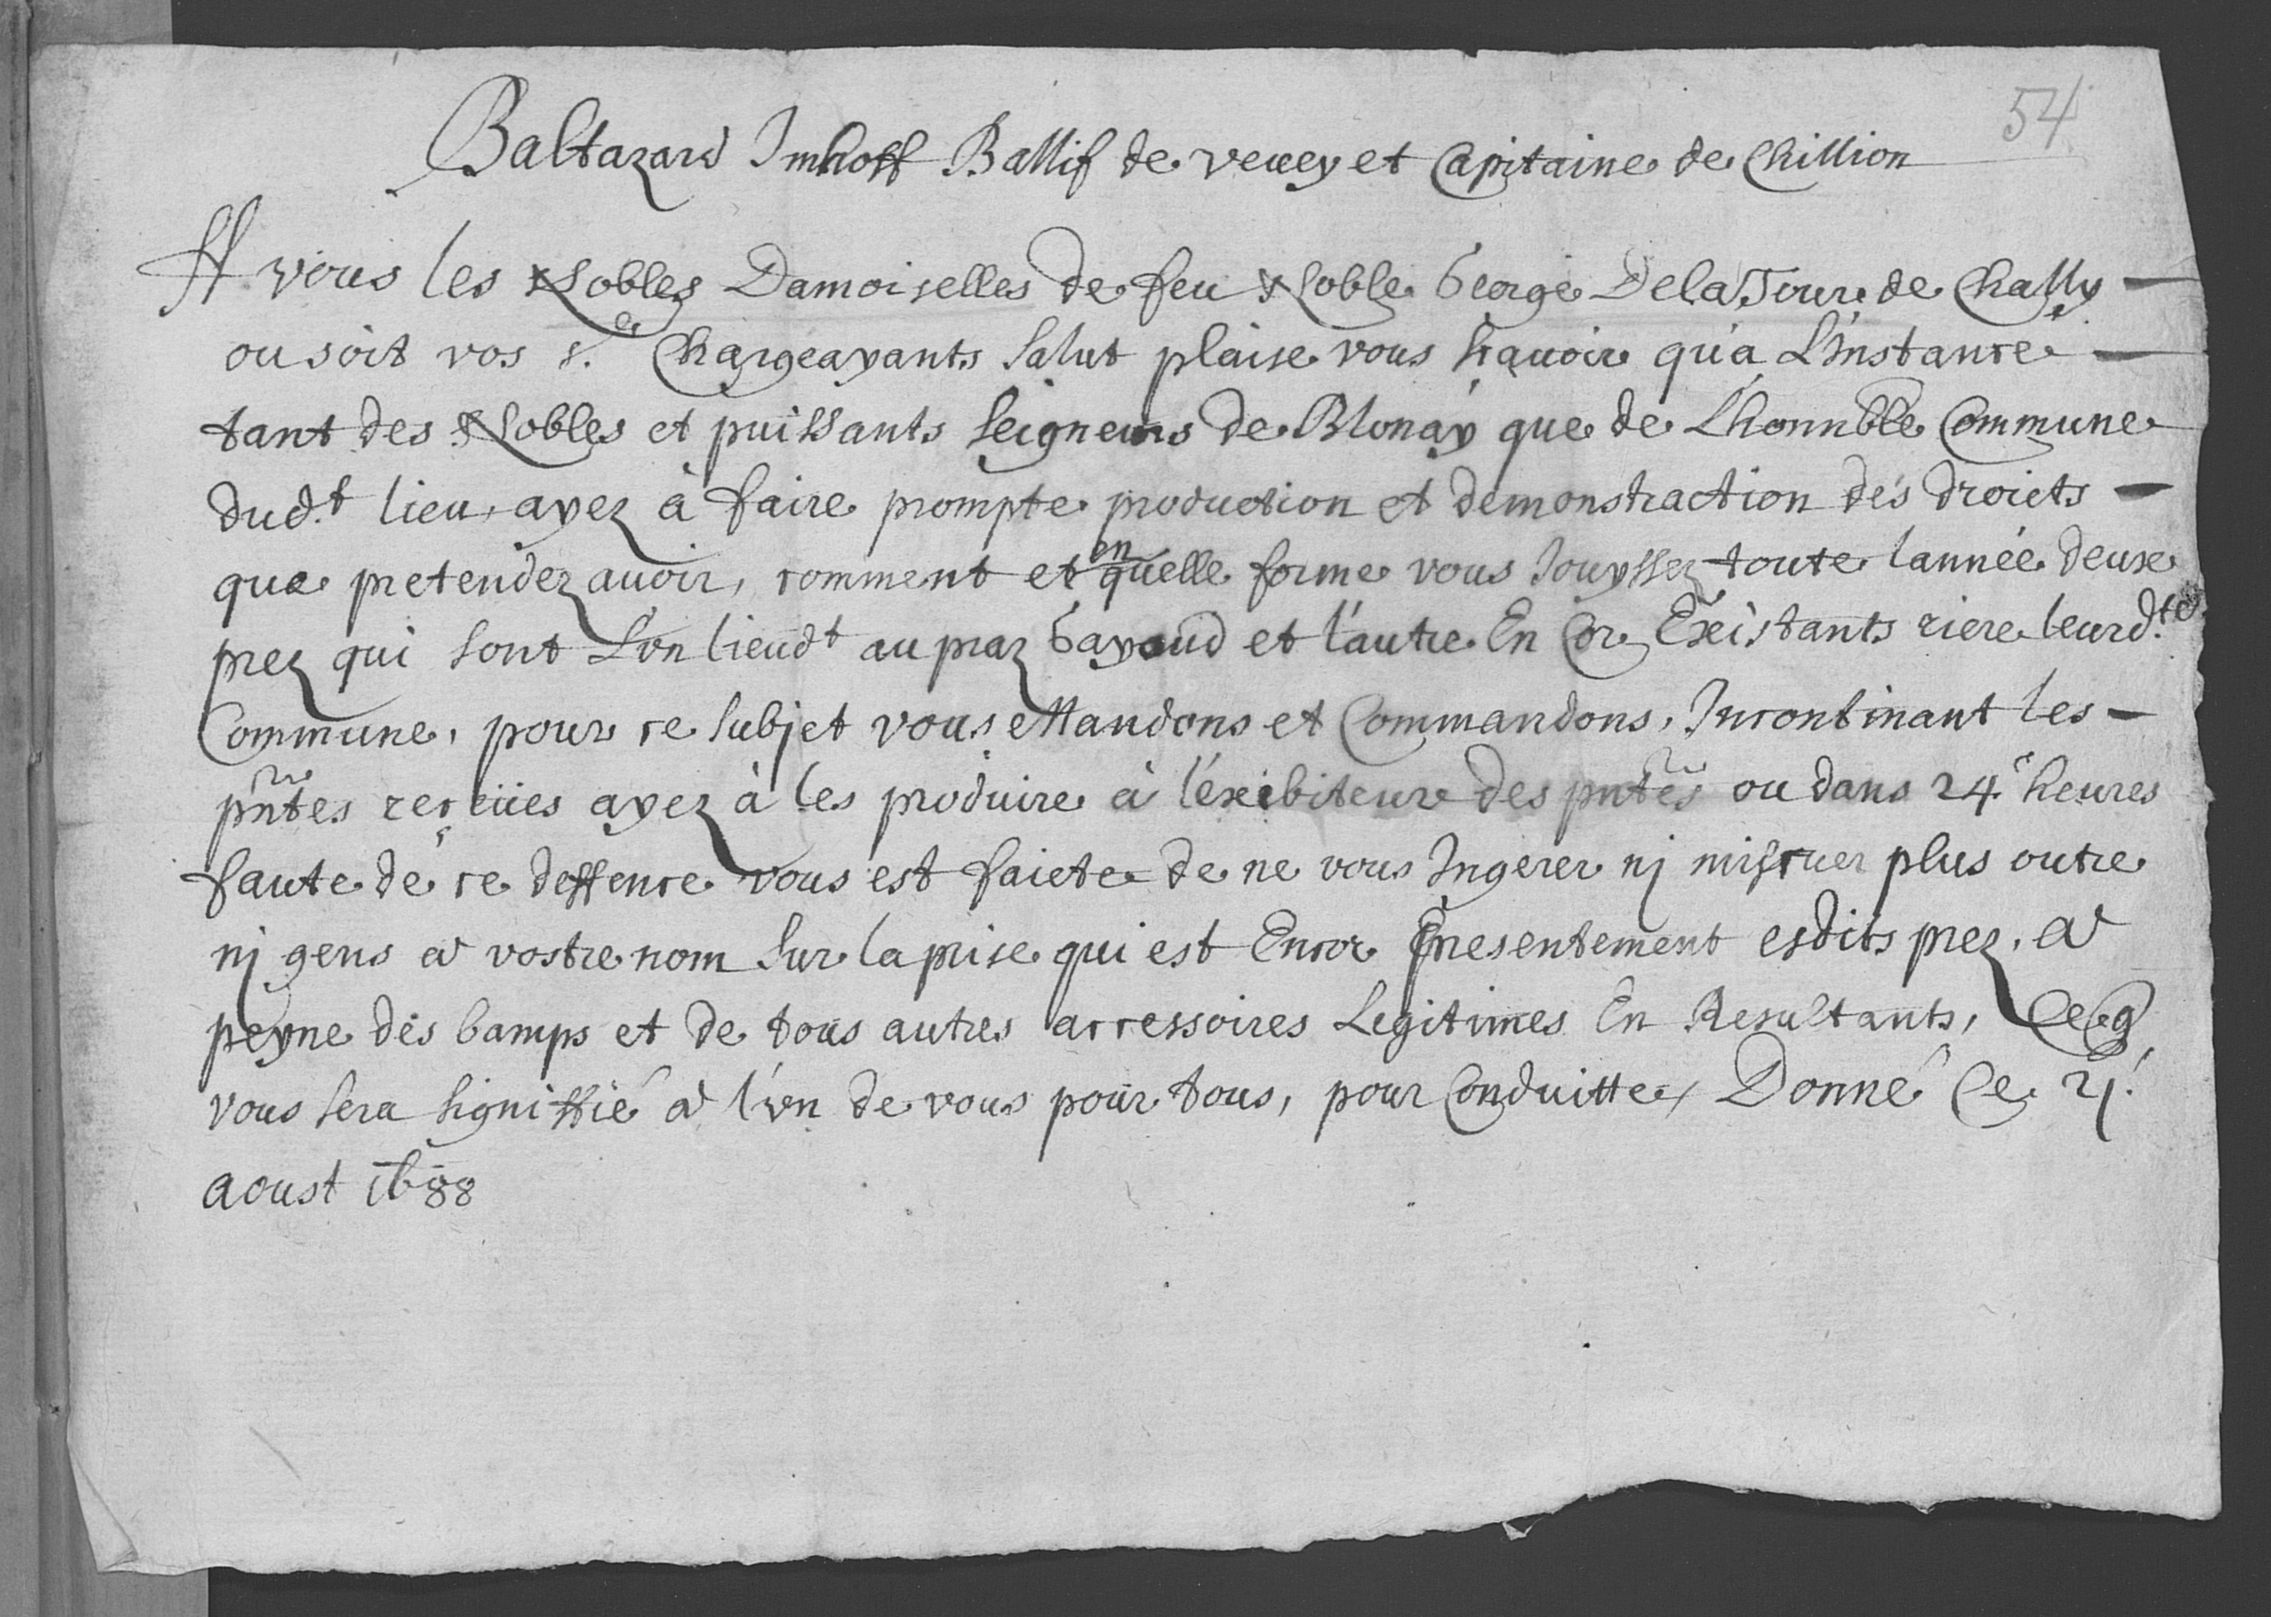 54
Baltazard Imhoff Ballif de Vevey et Capitaine de Chillion
A vous les Nobles Damoiselles de feu Noble George Dela Tour de Chally
ou soit vos Chargeayants Salut plaise vous scavoir qu'a L'instance
tant des Nobles et puissants Seigneurs de Blonay que de L'honnble Commune
dud.t lieu, ayez à faire prompte production et demonstraction des droicts
que pretendez avoir, comment et en quelle forme vous Jouyssez toute lannée deux
prez qui sont L'vn lieudt au praz Gayoud et l'autre En Cor Existants riere leurd.te
Commune, pour ce Subjet vous Mandons et Commandons, Incontinant les
pñtes receües ayez à les produire à l'exibiteur des pñtes ou dans 24 heures
faute de ce deffence vous est faicte de ne vous Ingerer nj plus outre
nj gens a vostre nom Sur la prise qui est Encor Presentement esdits prez, a
peyne des bamps et de tous autres accessoires Legitimes En Resultants, Ce q
vous sera signiffié a l'vn de vous pour tous, pour Conduitte, Donné Ce 2j.
aoust 1688